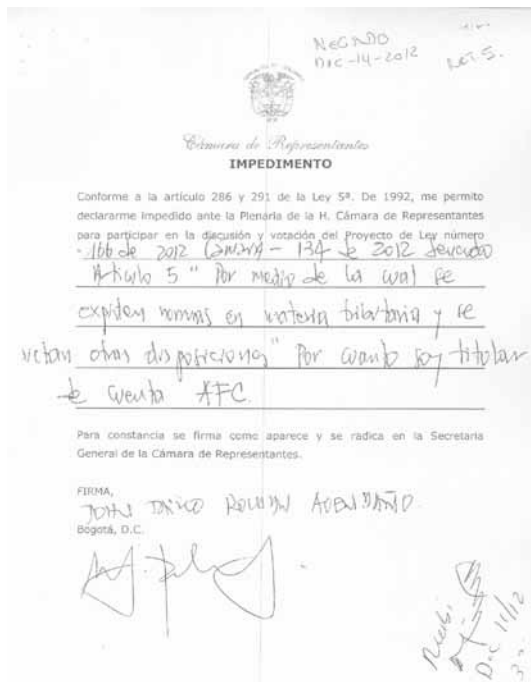 NEGADO
DIC-14-2012
ART. 5.
Cámara de Representantes
IMPEDIMENTO
Conforme a la artículo 286 y 291 de la Ley 5ª. De 1992, me permito
declararme impedido ante la Plenaria de la H. Cámara de Representantes
para participar en la discusión y votación del Proyecto de Ley número
166 de 2012 Cámara - 134 de 2012 Senado
Artículo 5 " Por medio de la cual se
expiden normas en materia tributaria y se
dictan otras disposiciones" Por cuanto soy titular
de cuenta AFC.
Para constancia se firma como aparece y se radica en la Secretaria
General de la Cámara de Representantes.
FIRMA,
ROLDAN AVENDAÑO
Bogotá, D.C.
Recibi
Dic 11/12